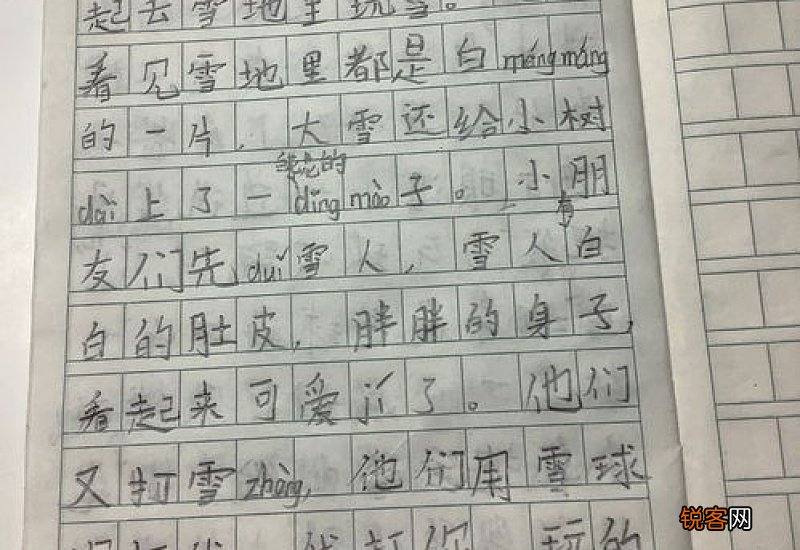 起去雪地里玩
看见雪地里都是白mángmáng
的一片，大雪还给小树
的
dài上了一dǐngmào子。小朋
有
友们先duī雪人，雪人白
白的肚皮，胖胖的身子，
看起来可爱jí了。他们
又打雪zhàng，他们用雪球
打你 玩的
锐客网